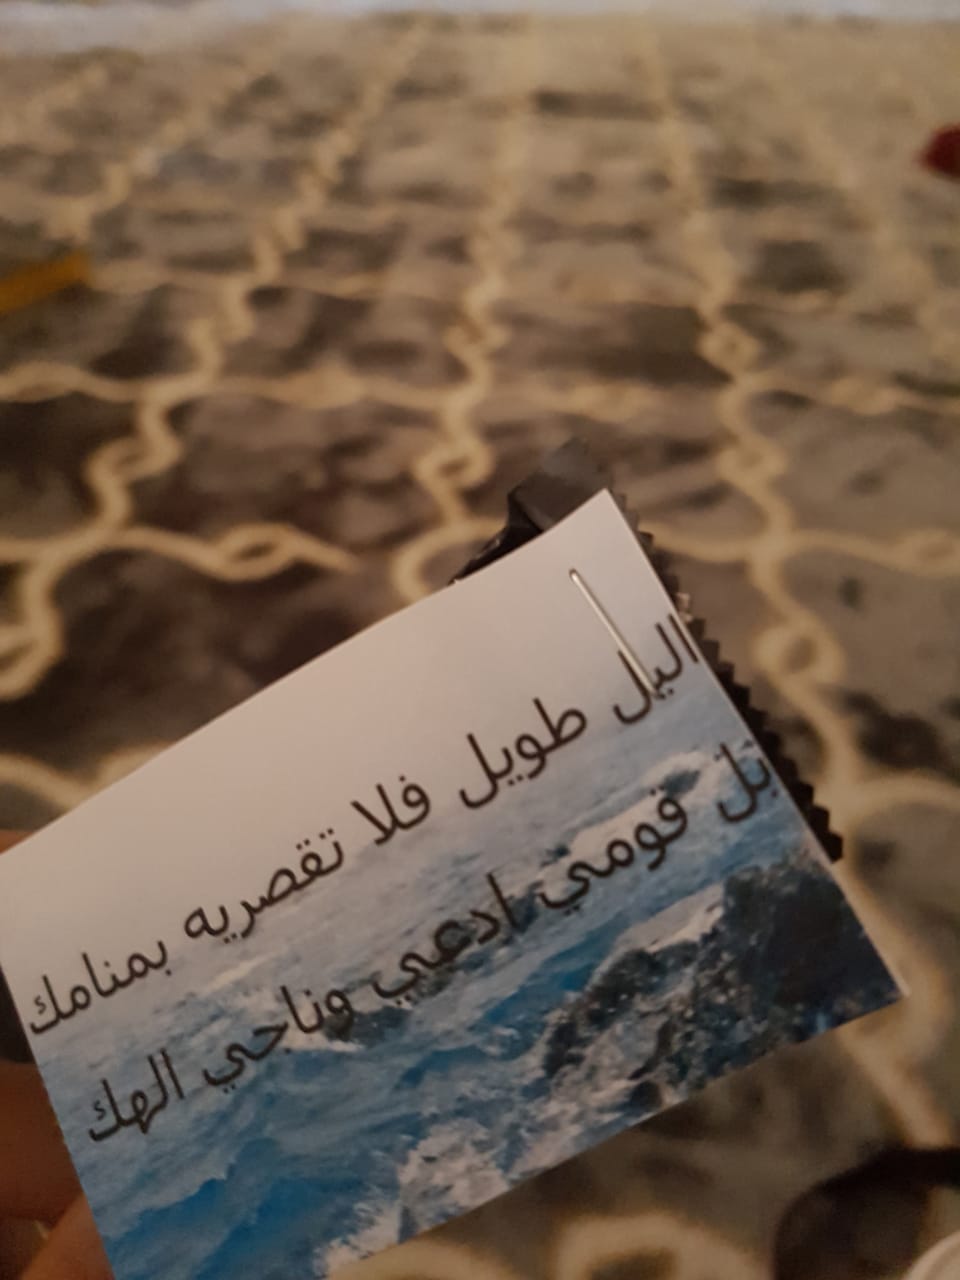 اليل طويل فلا تقصريه بمنامك
بل قومي ادعي وناجي الهك